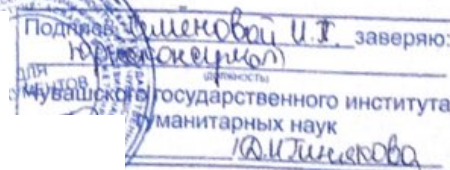 Подпись Тименовой И.Т. заверяю:
Юрисконсульт
(должность)
ДЛЯ
Чувашского государственного института
гуманитарных наук
/Д.И.Тинякова